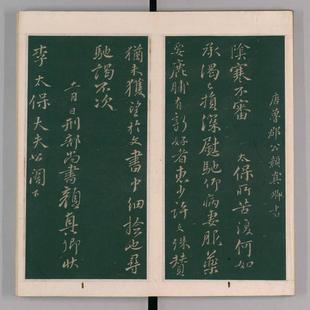 唐魯郡公顏真卿書
陰寒不審 太保所苦何如
承渴已損深慰馳仰病妻服藥
要鹿脯有新好者惠少許幸甚
猶未獲望於文書中細撿也尋
馳謁不次
十一日刑部尚書顏真卿狀
李太保大夫公閤下